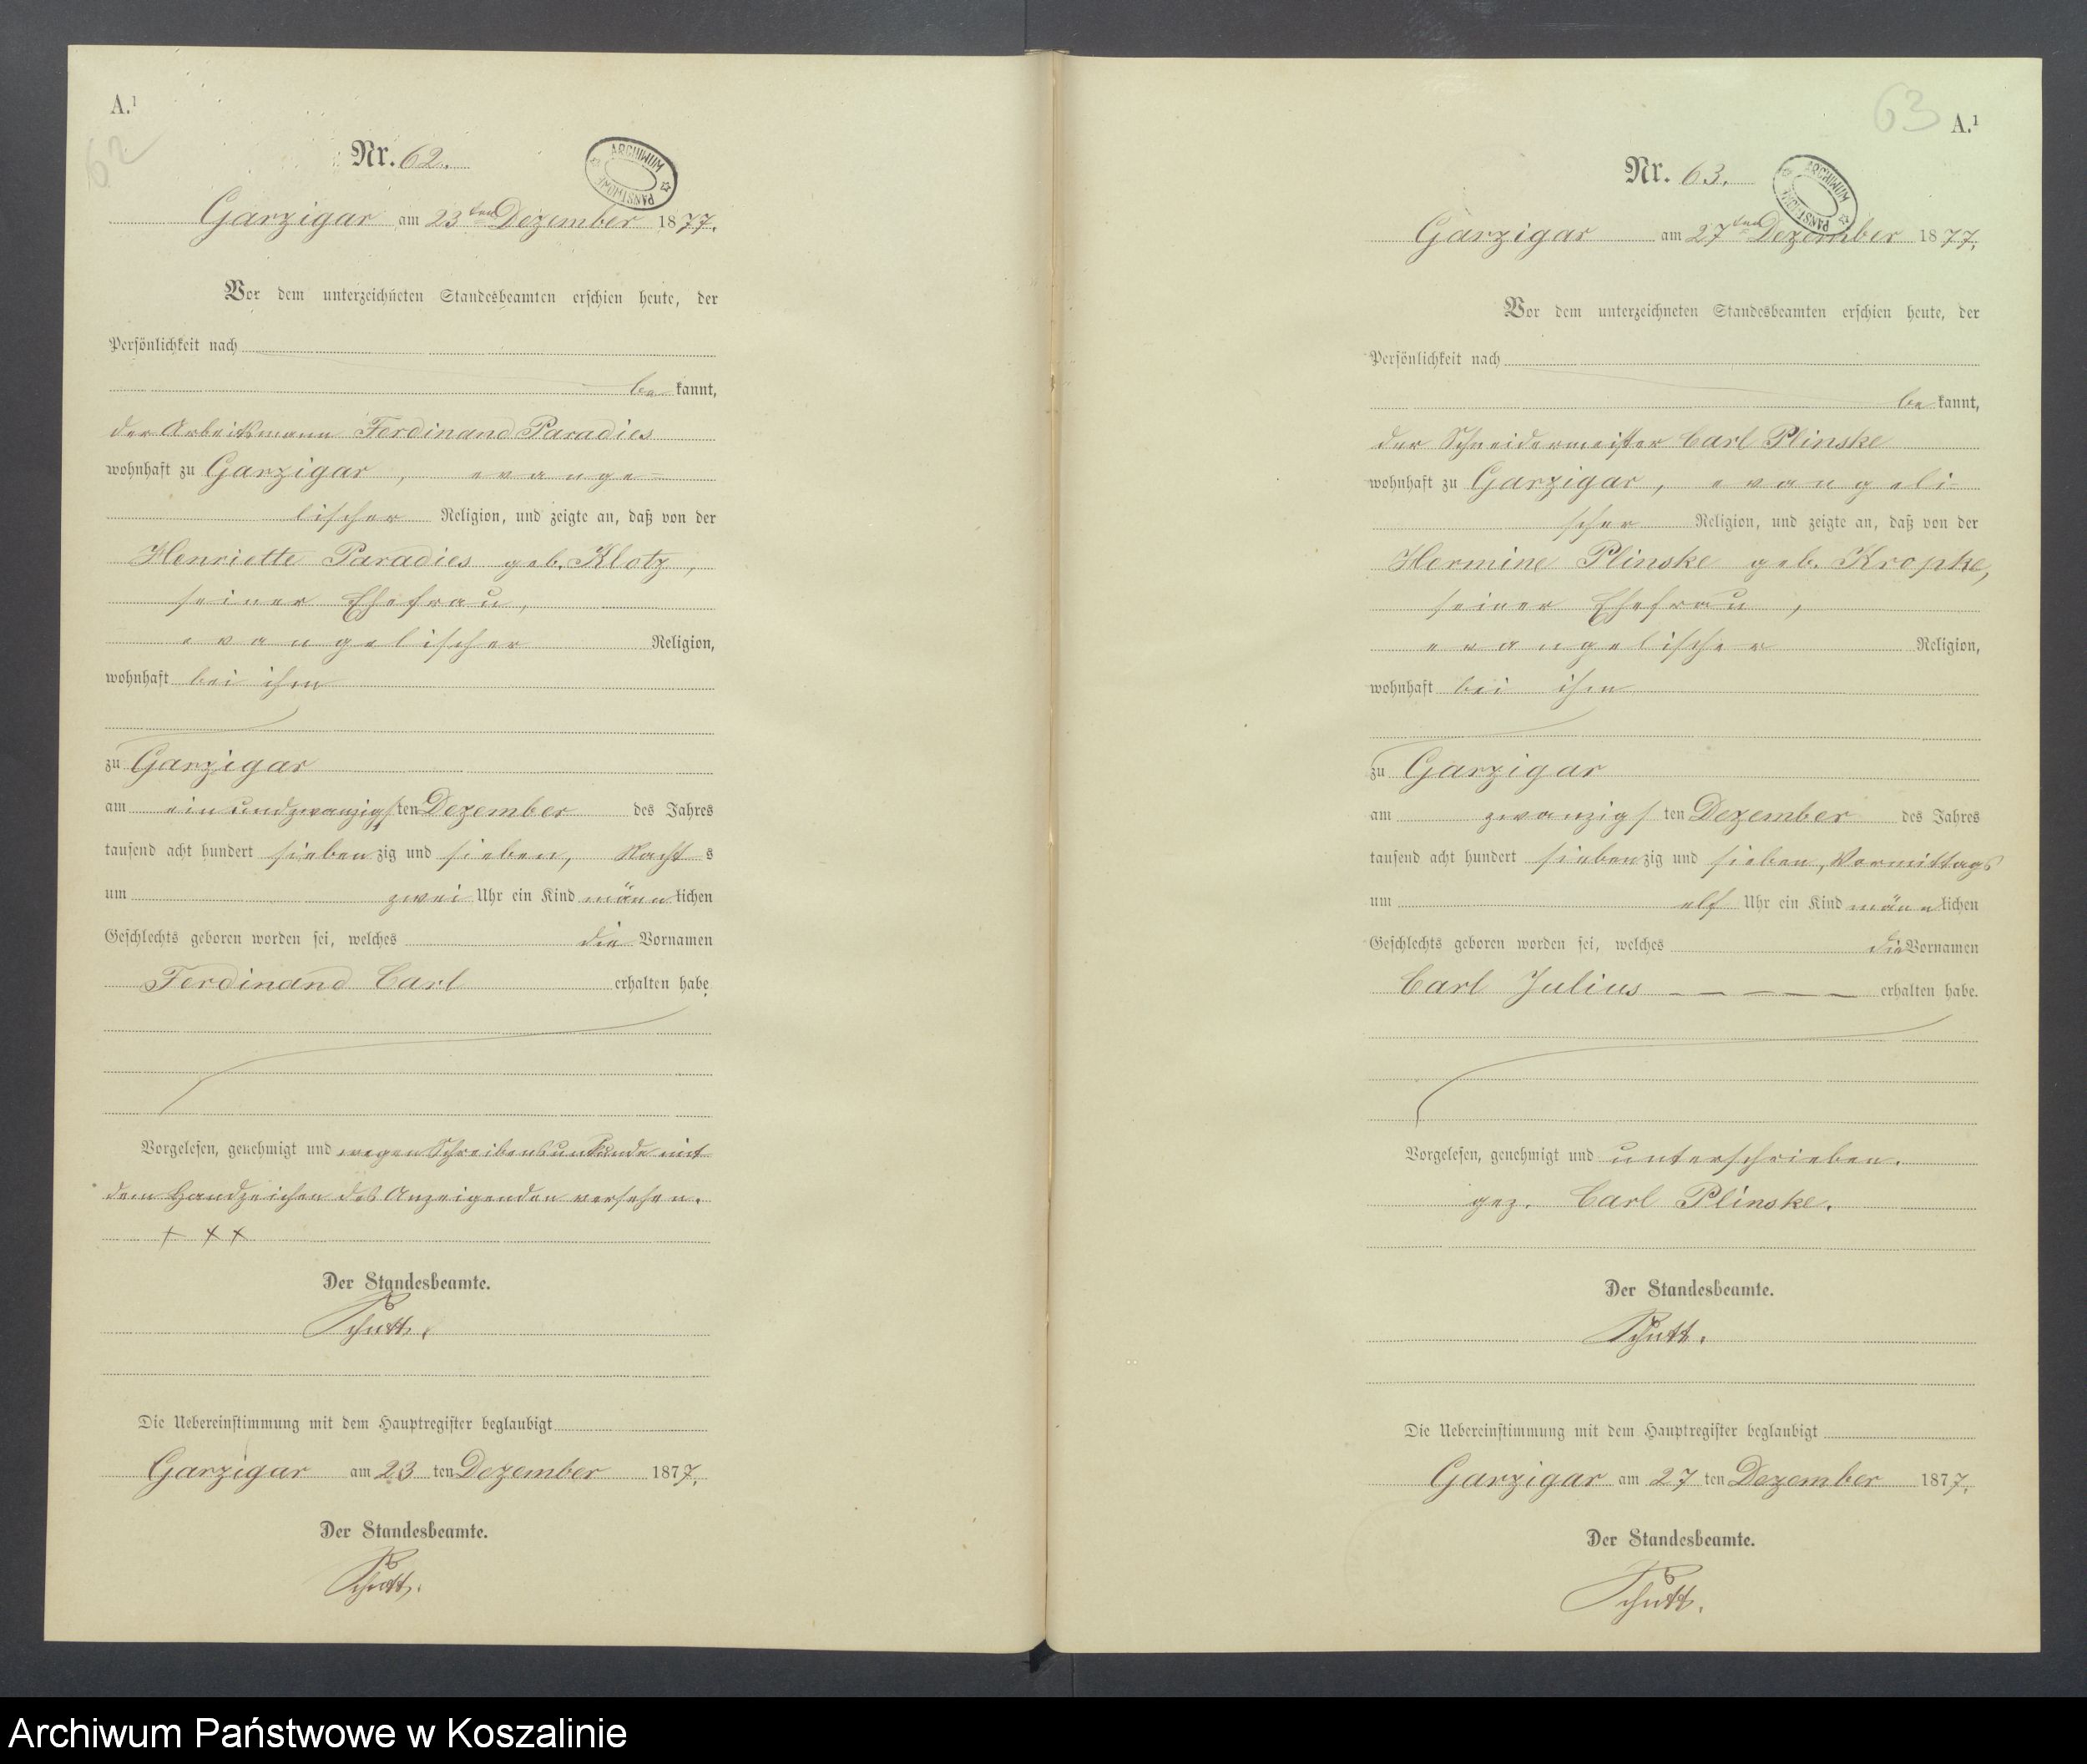 A.¹
62
Nr. 62.
ARCHIWUM PAŃSTWOWE
Garzigar am 23ten Dezember 1877.
Vor dem unterzeichneten Standesbeamten erschien heute, der
Persönlichkeit nach
be kannt,
der Arbeitsmann Ferdinand Paradies
wohnhaft zu Garzigar, evange-
lischer Religion, und zeigte an, daß von der
Henriette Paradies geb. Klotz,
seiner Ehefrau,
evangelischer Religion,
wohnhaft bei ihm
zu Garzigar
am ein und zwanzigsten Dezember des Jahres
tausend acht hundert siebenzig und sieben, Nachts
um zwei Uhr ein Kind männlichen
Geschlechts geboren worden sei, welches die Vornamen
Ferdinand Carl erhalten habe.
Vorgelesen, genehmigt und wegen Schreibensunkunde mit
dem Handzeichen des Anzeigenden versehen.
+ + +
Der Standesbeamte.
Schutt.
Die Uebereinstimmung mit dem Hauptregister beglaubigt
Garzigar am 23 ten Dezember 1877.
Der Standesbeamte.
Schutt.
63
A.¹
Nr. 63.
ARCHIWUM PAŃSTWOWE
Garzigar am 27ten Dezember 1877.
Vor dem unterzeichneten Standesbeamten erschien heute, der
Persönlichkeit nach
be kannt,
der Schneidermeister Carl Plinske
wohnhaft zu Garzigar, evangeli
scher Religion, und zeigte an, daß von der
Hermine Plinske geb. Kropke,
seiner Ehefrau,
evangelischer Religion,
wohnhaft bei ihm
zu Garzigar
am zwanzigsten Dezember des Jahres
tausend acht hundert siebenzig und sieben, Vormittags
um elf Uhr ein Kind männlichen
Geschlechts geboren worden sei, welches die Vornamen
Carl Julius — — — — — erhalten habe.
Vorgelesen, genehmigt und unterschrieben.
gez. Carl Plinske.
Der Standesbeamte.
Schutt.
Die Uebereinstimmung mit dem Hauptregister beglaubigt
Garzigar am 27 ten Dezember 1877.
Der Standesbeamte.
Schutt.
Archiwum Państwowe w Koszalinie